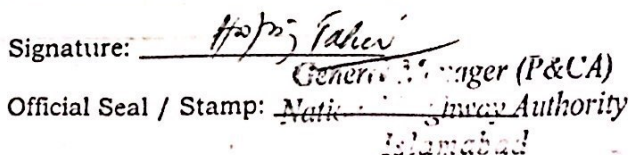 Signature: Tahir
General Manager (P&CA)
Official Seal / Stamp: National Highway Authority
Islamabad